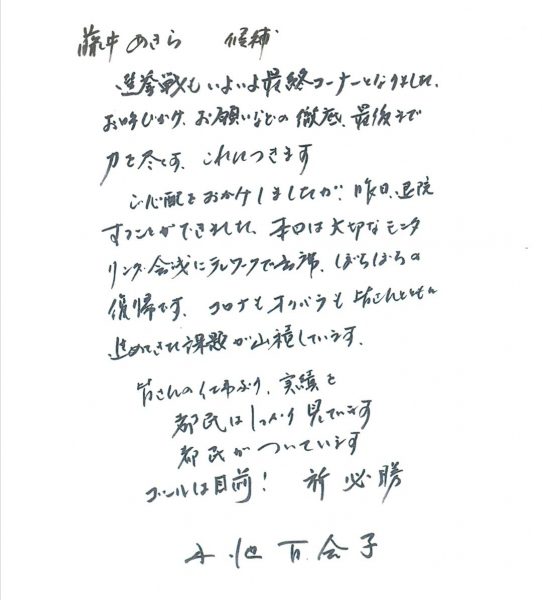 藤井あきら 候補
選挙戦もいよいよ最終コーナーとなりました。
お呼びかけ、お願いなどの徹底、最後まで
力を尽くす、これにつきます
ご心配をおかけしましたが、昨日、退院
することができました。本日は大切なモニタ
リング会議にテレワークで出席、ぼちぼちの
復帰です。コロナもオリパラも皆さんとともに
進めてきた課題が山積しています。
皆さんの仕事ぶり、実績を
都民はしっかり見ています
都民がついています
ゴールは目前! 祈 必勝
小池百合子